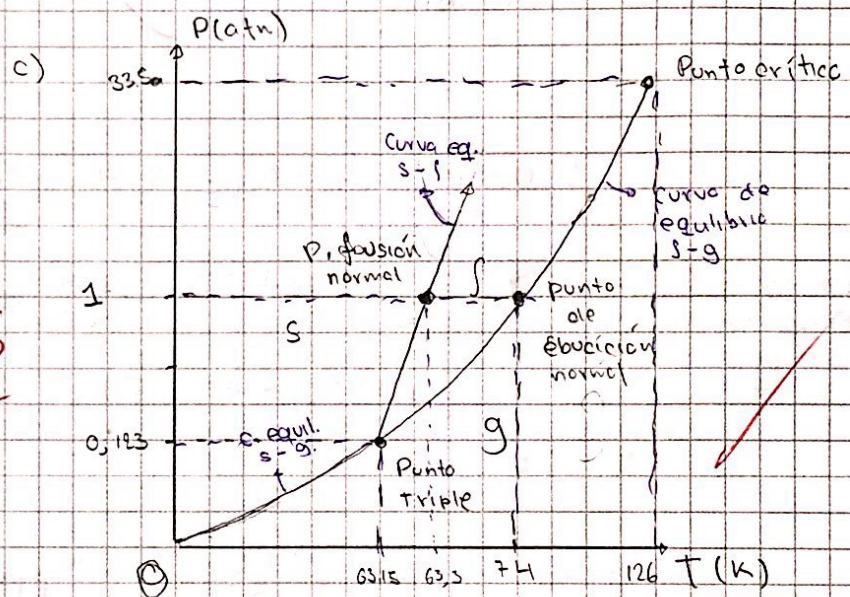 P(atm)
c)
33.5a
Punto crítico
Curva eq.
s-l
curva de
equilibrio
l-g
P. fusión
normal
l
1
punto
de
ebucición
normal
s
0,123
c. equil.
s-g.
g
Punto
triple
O
63,15
63,3
74
126
T (K)